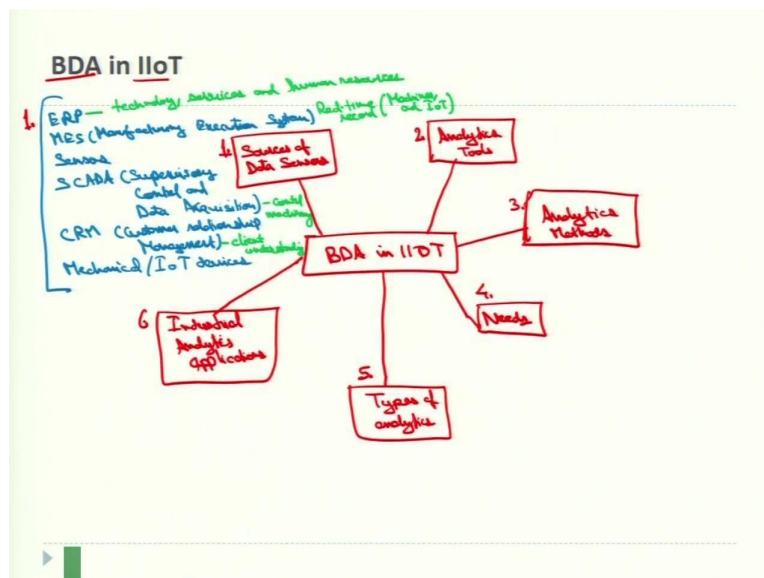 BDA in IIoT
1. ERP — technology, services and human resources
MES (Manufacturing Execution System) Real-time record (Machines and IoT)
Sensors
SCADA (Supervisory
Control and
Data Acquisition) — control machinery
CRM (Customer relationship
Management) — client understanding
Mechanical / IoT devices
1. Sources of
Data Sensors
2. Analytics
Tools
3. Analytics
Methods
BDA in IIOT
4.
Needs
5.
Types of
analytics
6 Industrial
Analytics
Applications